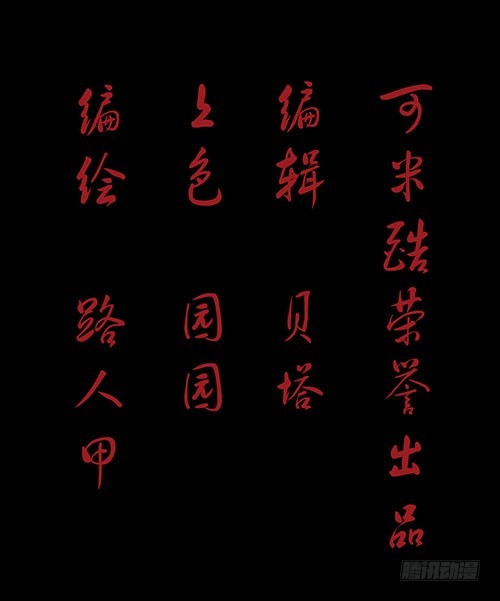 可米酷荣誉出品
编辑 贝塔
上色 园园
编绘 路人甲
腾讯动漫